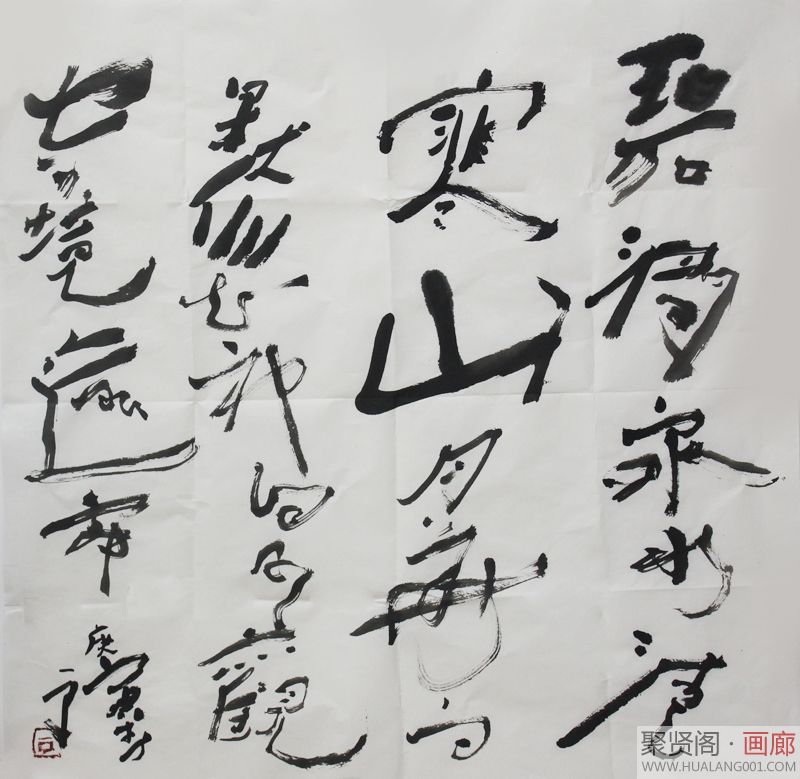 碧澗泉水清
寒山月華白
默知神自明觀
空境逾寂
庚寅
聚贤阁·画廊
WWW.HUALANG001.COM